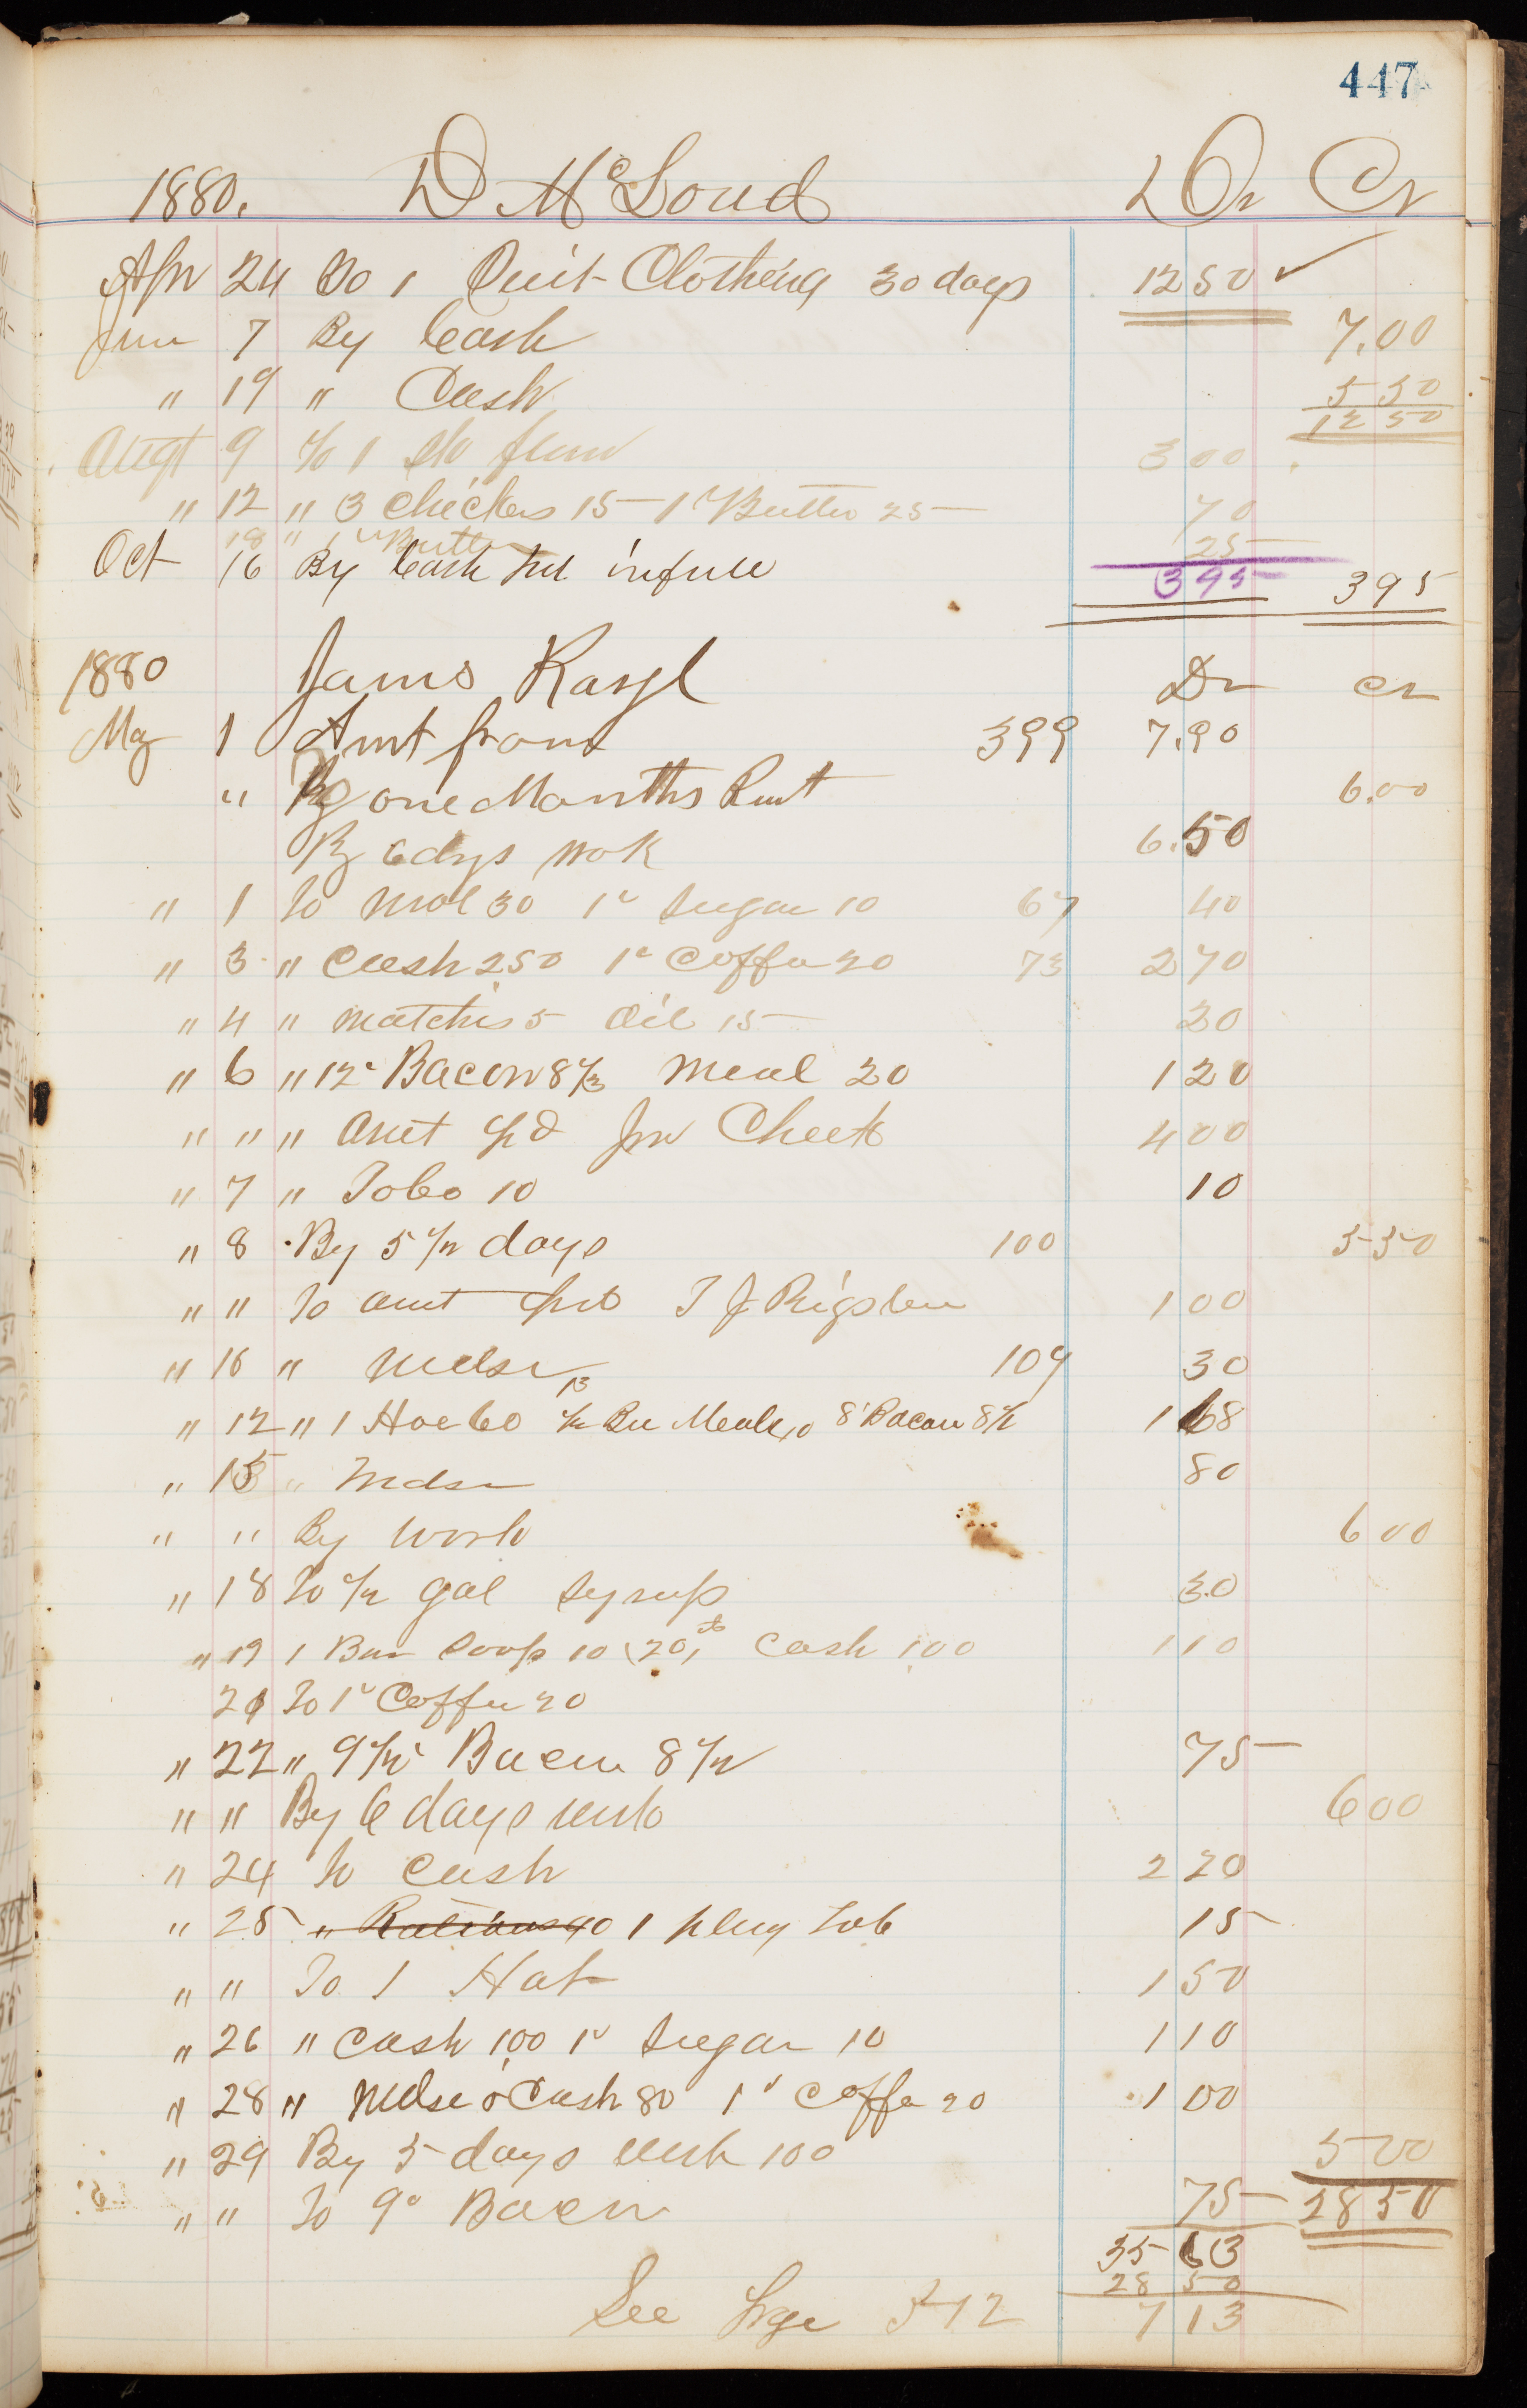 447
1880. D McLoud Dr Cr
Apr 24 To 1 Suit Clothing 30 days 12 50 ✓
Jun 7 By Cash 7.00
" 19 " Cash 5 50
12 50
Augt 9 To 1 3 00
" 12 " 3 Chickens 15 - 1 # Butter 25 70
18 " 1 " Butter 25
Oct 16 By Cash in full 3 95 3 95
1880 James Dr Cr
May 1 Amt from 399 7.90
" By one Months Rent 6.00
By 6 dys wok 6.50
" 1 To Mol 30 1# Sugar 10 67 40
" 3 " Cash 2.50 1# Coffee 20 73 2 70
" 4 " Matches 5 Oil 15 20
" 6 " 12# Bacon 8 1/3 Meal 20 1 20
" " " Amt pd Jno Cheek 4 00
" 7 " Tobo 10 10
" 8 By 5 1/2 days 100 5 50
" " To amt pd T J Rigsbee 1 00
" 10 " Mdse 109 30
13
" 12 " 1 Hoe 60 1/2 Bu Meal 40 8# Bacon 8 1/2 1 68
" 15 " Mdse 80
" " By Work 6 00
" 18 To 1/2 gal Syrup 30
" 19 1 Bar Soap 10 (20th Cash 1.00 1 10
21 To 1# Coffee 20
" 22 " 9 1/2# Bacon 8 1/2 75
" " By 6 days work 6 00
" 24 To Cash 2 20
" 25 " Rations 40 1 plug Tob 15
" " To 1 Hat 1 50
" 26 " Cash 1.00 1# Sugar 10 1 10
" 28 " Mdse & Cash 80 1# Coffee 20 1 00
" 29 By 5 days work 100 5 00
" " To 9# Bacon 75 28 50
35 63
28 50
See Page 512 7 13